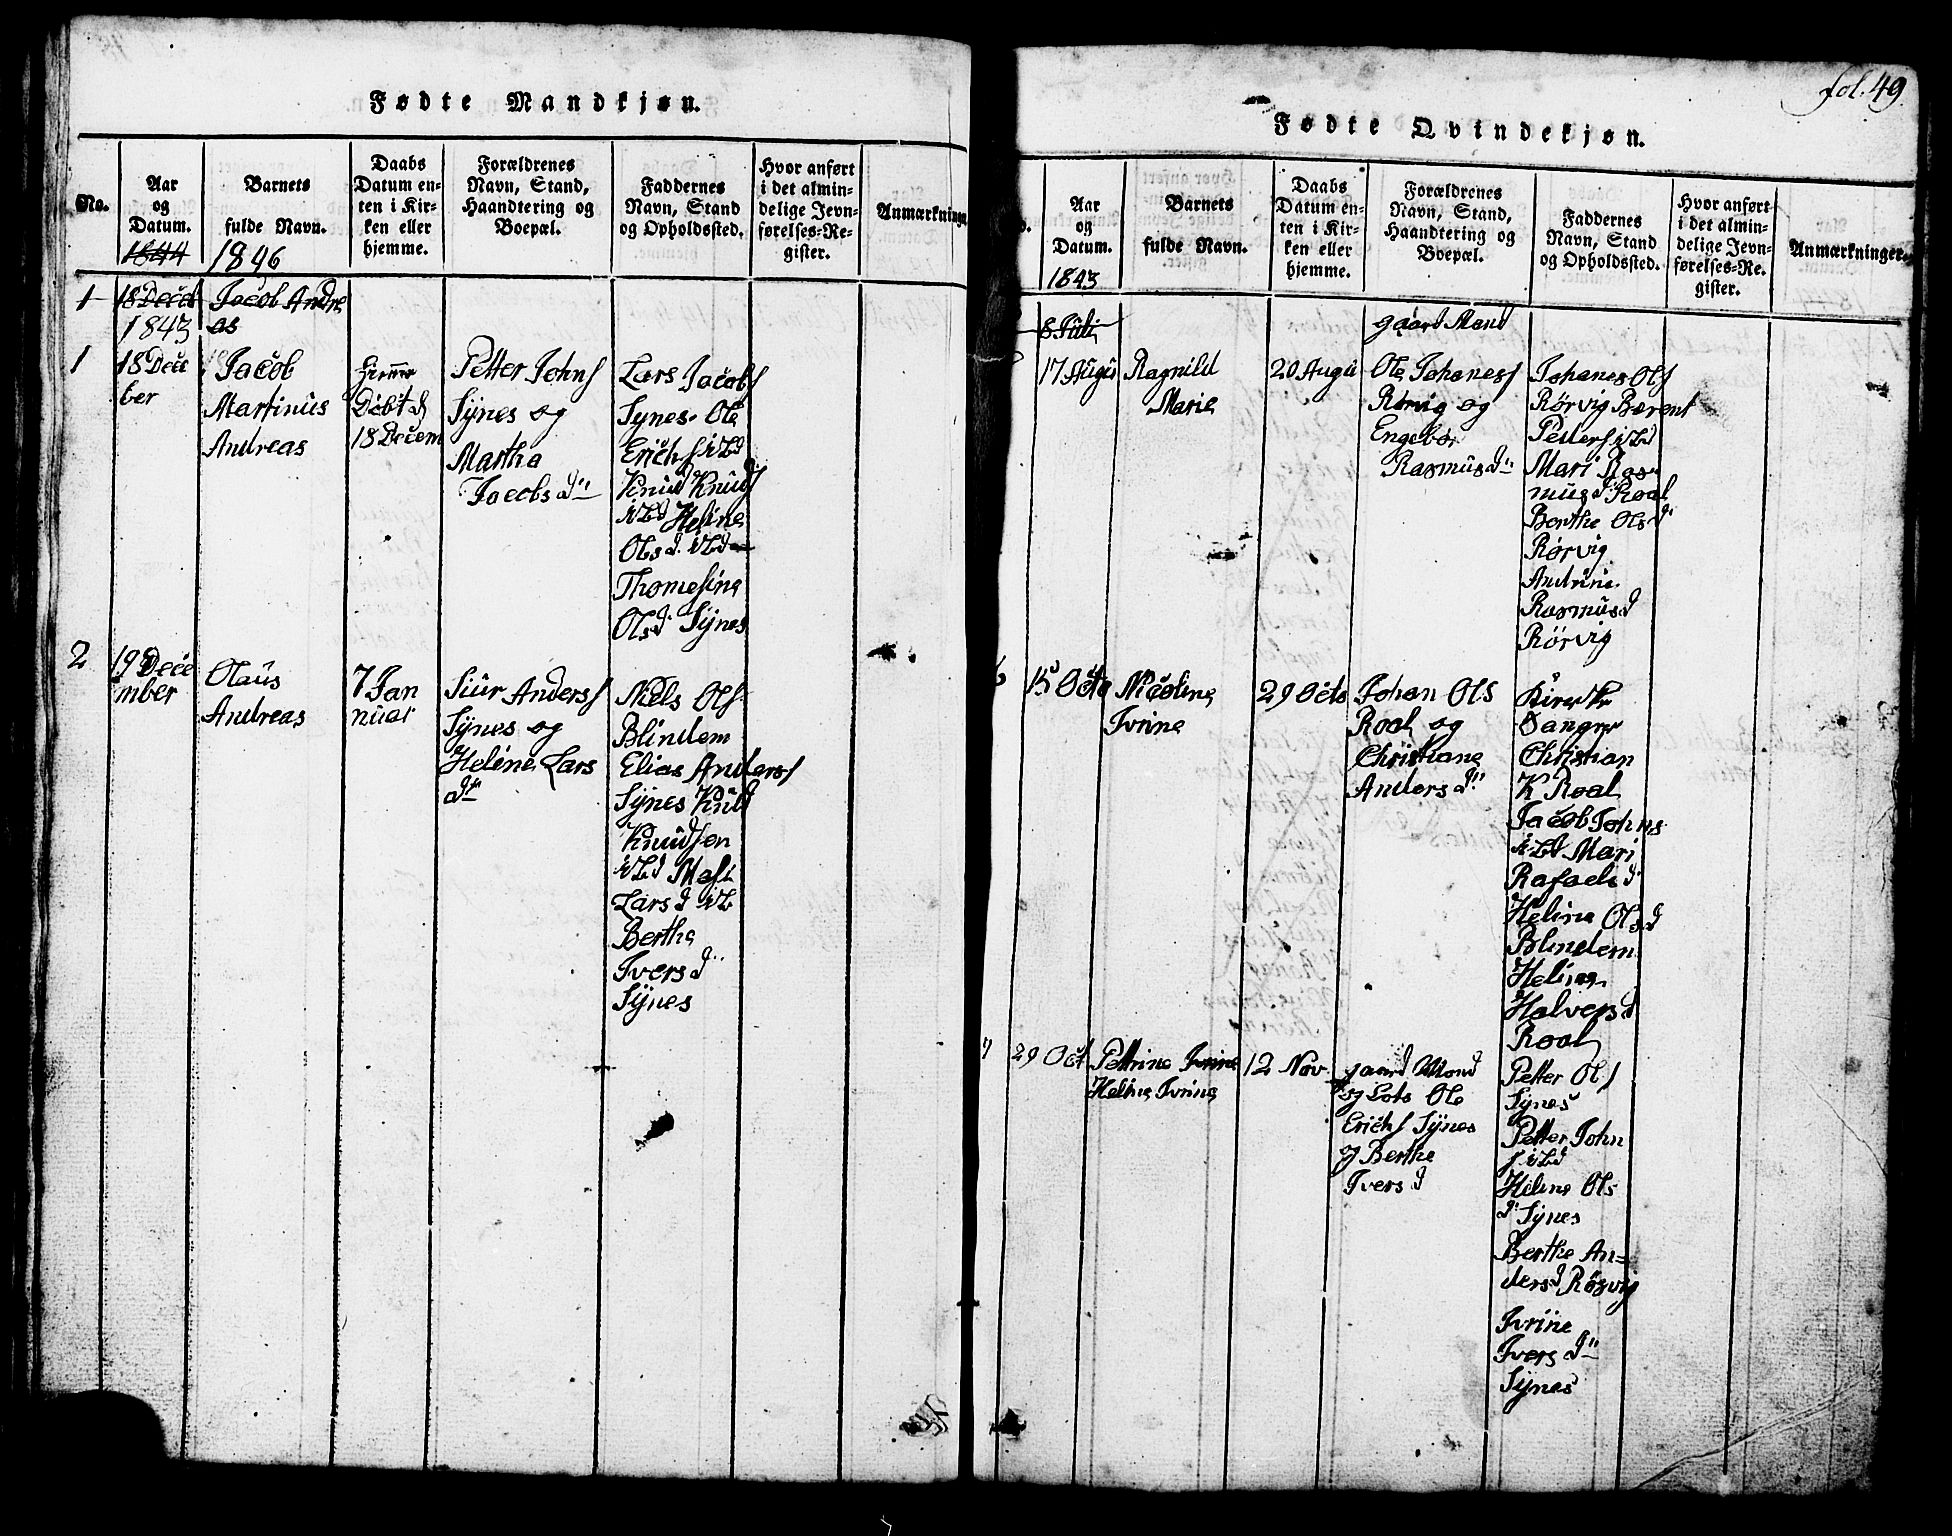 fol. 49
Fødte Mandkjøn.
No.
Aar
og
Datum.
Barnets
fulde Navn.
Daabs
Datum en-
ten i Kir-
ken eller
hjemme.
Forældrenes
Navn, Stand,
Haandtering og
Boepæl.
Faddernes
Navn, Stand
og Opholdssted.
Hvor anført
i det almin-
delige Jevn-
førelses-Re-
gister.
Anmærkninge
1844
1846
1
18 Decd
1843
Jacob Andre
as
1
18 Dece
ber
Jacob
Martinus
Andreas
Döbt d
18 Decem
Petter Johns
Synes og
Martha
Jacobs dtr
Lars Jacobs
Synes. Ole
Erichs ibd
Knud Knuds
ibd Heline
Olsd. ibd
Thomesine
Olsd. Synes
2
19 Dece
mber
Olaus
Andreas
7 Jan
nuar
Siur Anders
Synes og
Heline Lars
dtr
Niels Ols
Blindem
Elias Anders
Synes Knud
Knudsen
ibd Masi
Larsd ib
Berthe
Iversd
Synes
Fødte Qvindekjøn.
Aar
og
Datum.
Barnets
fulde Navn.
Daabs
Datum en-
ten i Kir-
ken eller
hjemme.
Forældrenes
Navn, Stand,
Haandtering og
Boepæl.
Faddernes
Navn, Stand
og Opholdssted.
Hvor anført
i det almin-
delige Jevn-
førelses-Re-
gister.
Anmærkninger.
1843
8 Juli
gaard Mand
17 Augu
Ragnild
Marie
20 Augu
Ole Johaness
Rørvig og
Engebør
Rasmusdtr
Johanes Ols
Rørvig Bærent
Petters ibd
Mari Ras-
musd Roal
Berthe Olsd
Rørvig
Andrine
Rasmusd
Rørvig
6
15 Octo
Nicoline
Ivrine
29 Octo
Johan Ols
Roal og
Christiane
Andersd.
Sanger
Christian
K Roal
Jacob Johns
ibd Mari
Rafaelsd
Heline Olsd
Blindem
Heline
Halversd
Roal
7
29 Oct
Petrine Ivrine
Heline Ivrine
12 Nov
gaard Mand
og Lots Ole
Erichs Synes
og Berthe
Iversd
Petter Ols
Synes
Petter John
s ibd
Heline Ols
d. Synes
Berthe An-
dersd Rørvig
Ivrine
Iversdtr
Synes